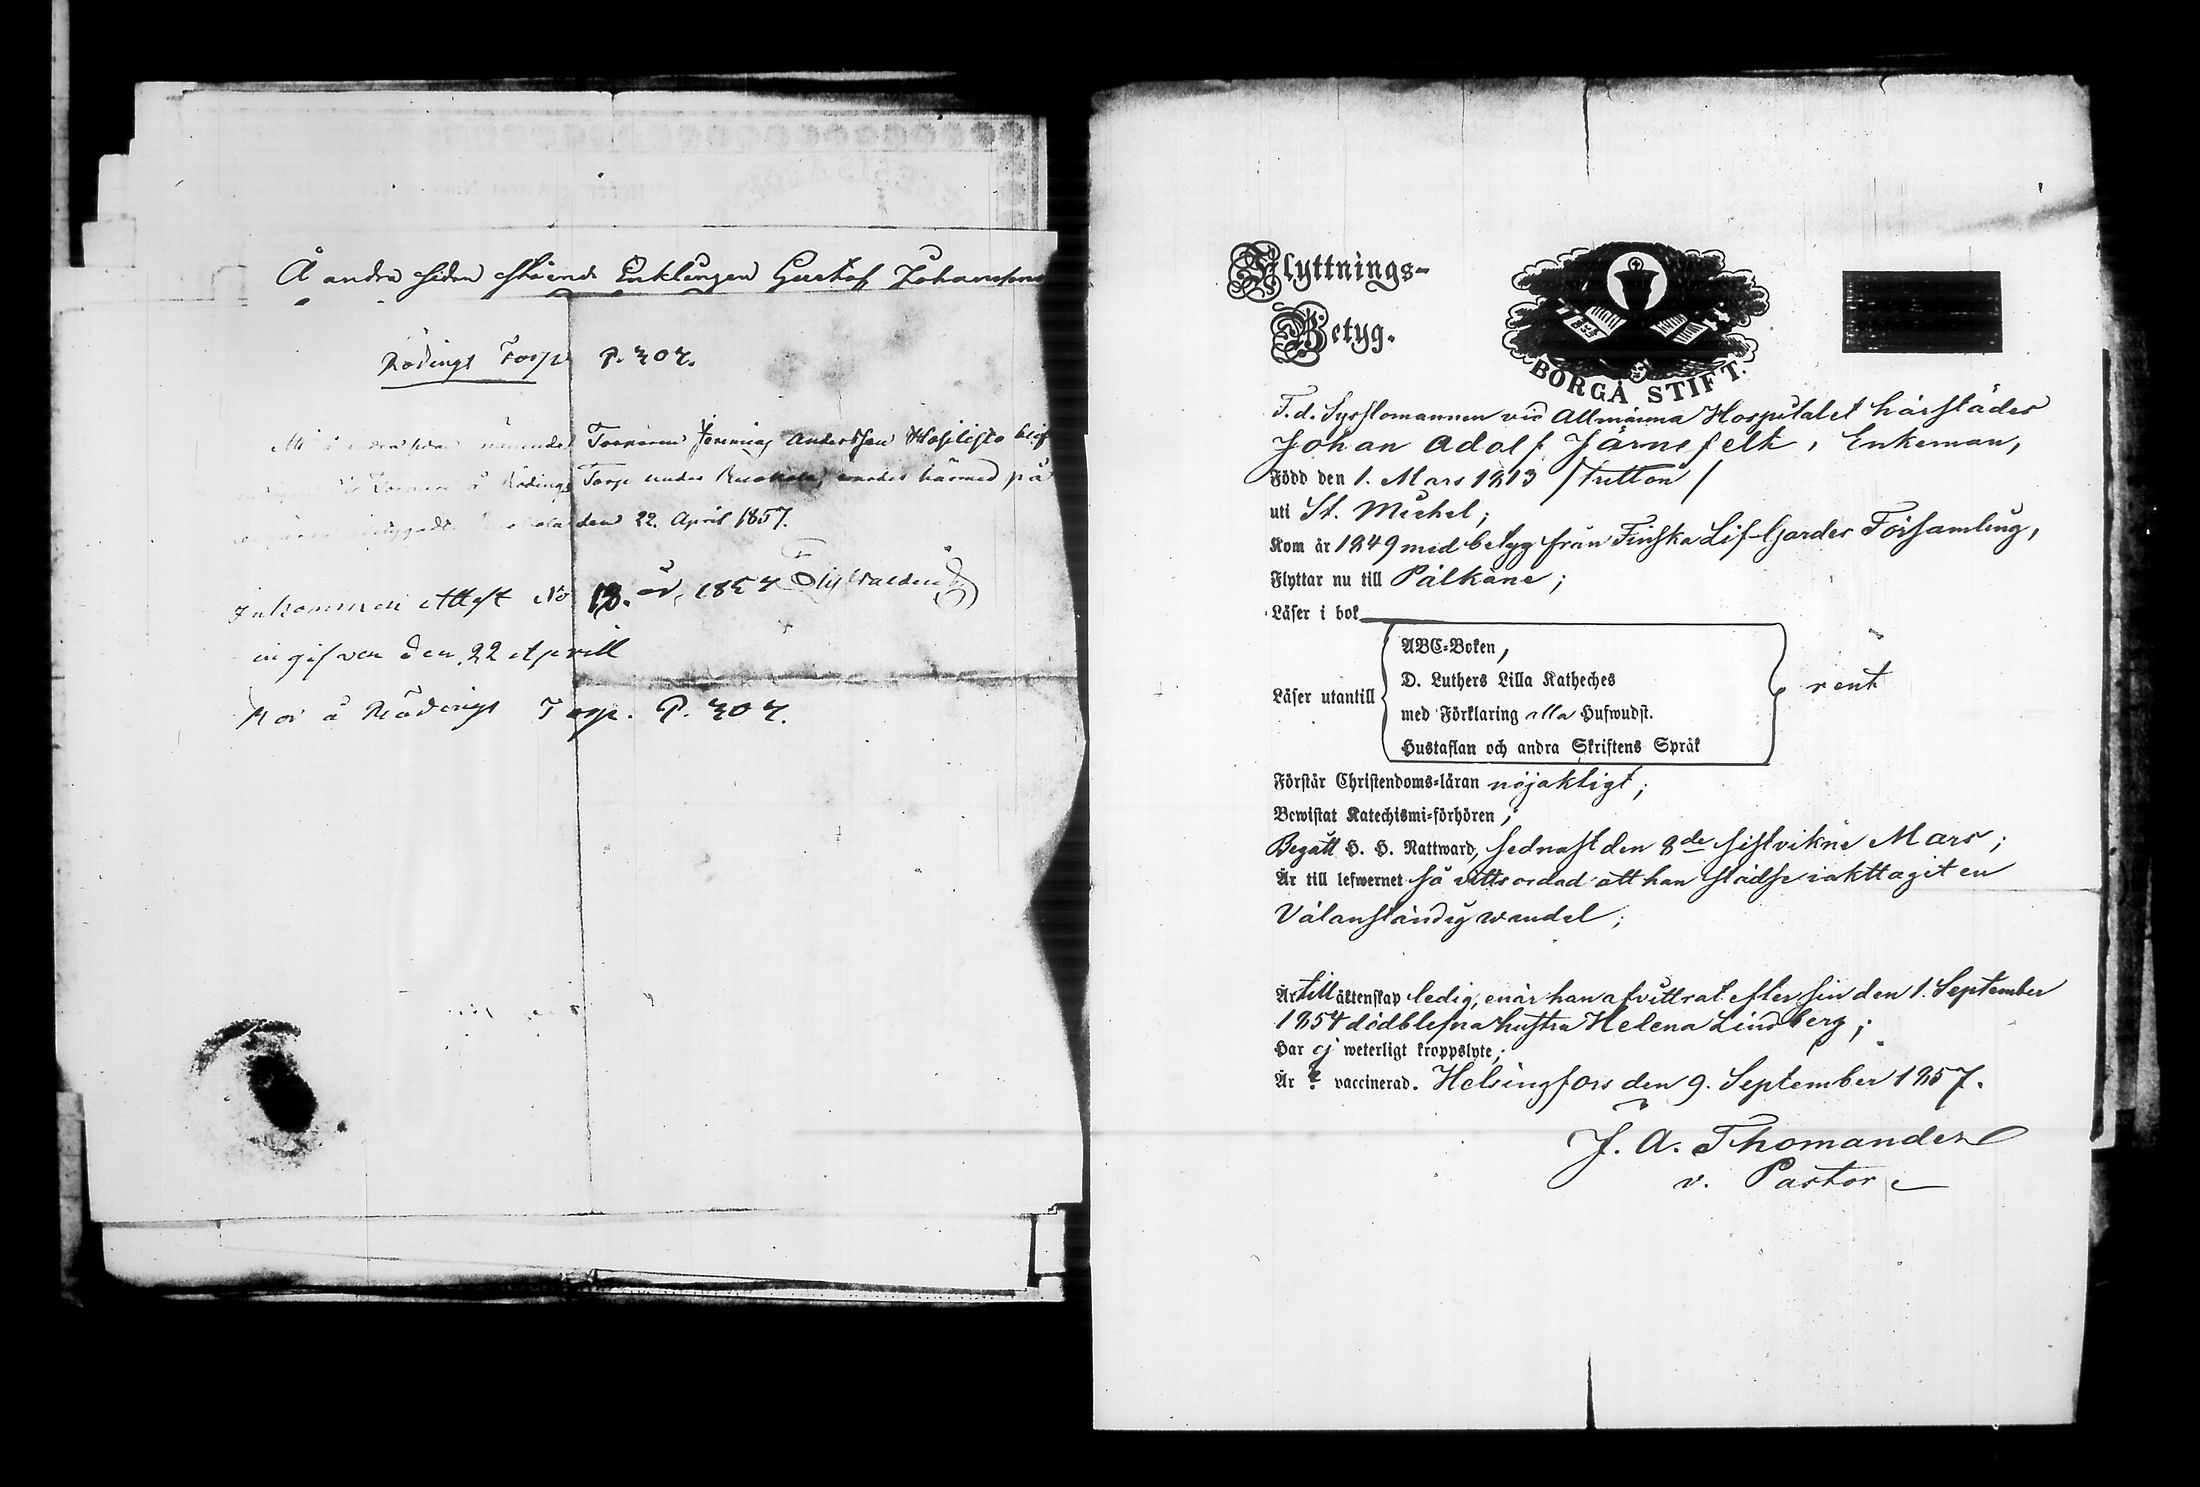 Å andra sidan stående Enklingen Gustaf Johansson
Rödings Torp P. 307.
andra sidan nämnde Torparen Jeremias Andersson
å Rödings Torp under varder härmed på
den 22. April 1857.
Inkommen Attest No 18. år 1857
ingifven den 22 April
Bor å Rödings Torp. P. 307.
Flyttnings-
Betyg.
BORGÅ STIFT.
F. d. Sysslomannen vid Allmänna Hospitalet härstädes
Johan Adolf Järnefelt, Enkeman,
Född den 1. Mars 1813 /tretton/
uti St. Michel;
Kom år 1849 med betyg från Finska Lif-Gardes Församling,
Flyttar nu till Pälkäne;
Läser i bok
ABC-Boken,
D. Luthers Lilla Katheches
med Förklaring alla Hufwudst.
Hustaflan och andra Skriftens Språk
Läser utantill
rent
Förstår Christendoms-läran nöjaktigt;
Bewistat Katechismi-förhören;
Begått H. H. Nattward, sednast den 8de sistvikne Mars;
Är till lefwernet så vittsordad att han städse iakttagit en
Välanständig wandel;
Är till äktenskap ledig, enär han afvittrat efter sin den 1. September
1854 dödblefna hustru Helena Lindberg;
Har ej weterligt kroppslyte;
Är ? vaccinerad. Helsingfors den 9. September 1857.
J. A. Thomander
v. Pastor